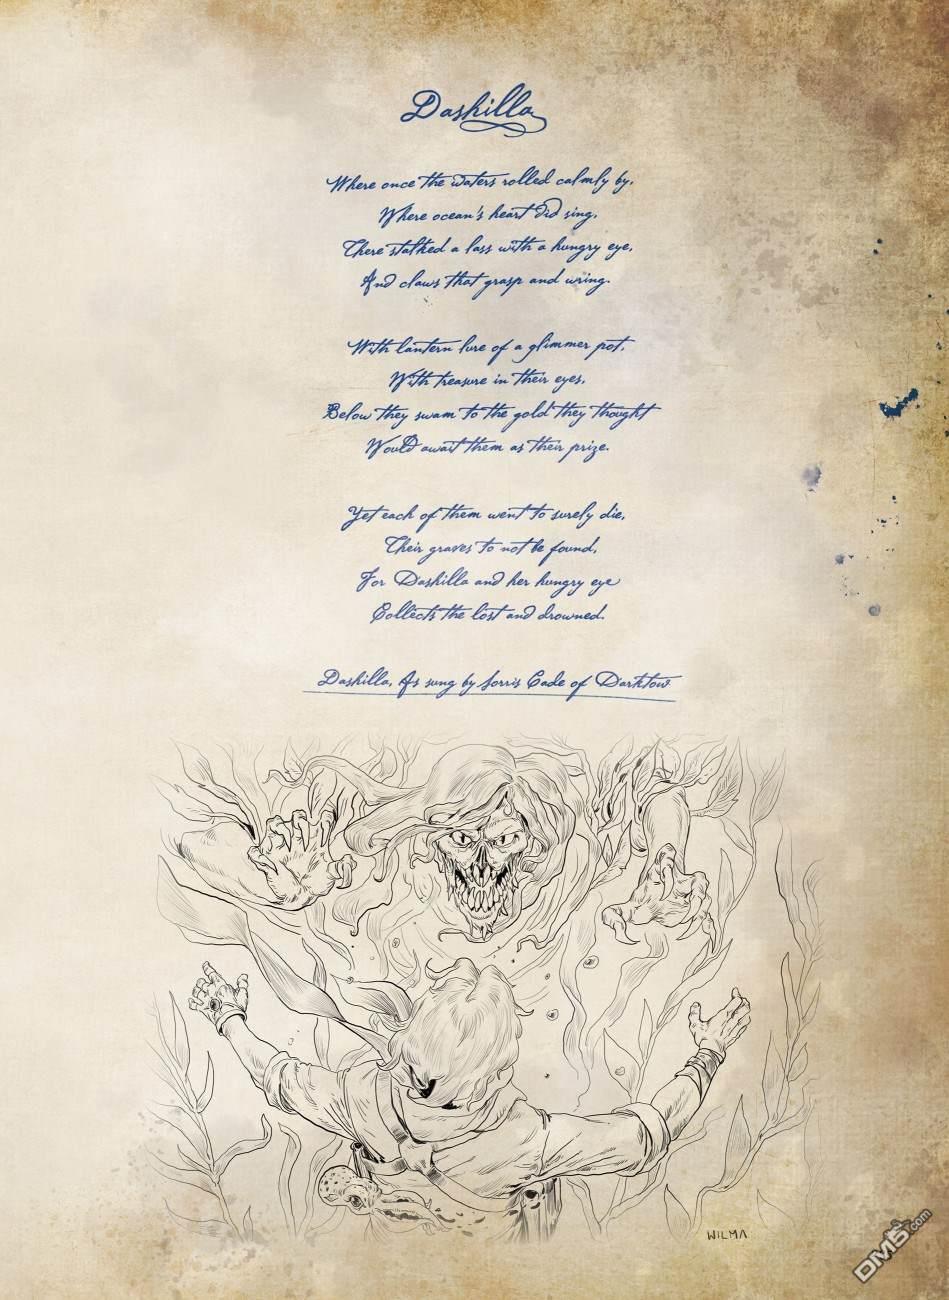 Dashilla
Where once the waters rolled calmly by,
Where ocean's heart did sing,
There stalked a lass with a hungry eye,
And claws that grasp and wring.
With lantern lure of a glimmer pot,
With treasure in their eyes,
Below they swam to the gold they thought
Would await them as their prize.
Yet each of them went to surely die,
Their graves to not be found,
For Dashilla and her hungry eye
Collects the lost and drowned.
Dashilla, As sung by Sorris Cade of Darktow
WILMA
DM5.com